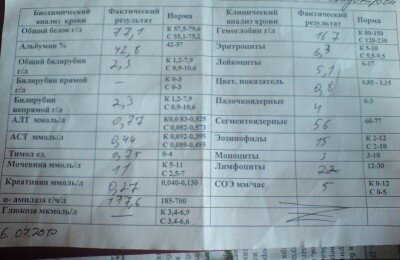 Биохимический анализ крови Фактический результат Норма Клинический анализ крови Фактический результат Норма
Общий белок г/л 77,1 К 57,5-79,6 С 55,1-75,2 Гемоглобин г/л 167 К 80-150 С 120-230
Альбумин % 42,8 42-57 Эритроциты 6,3 К 5-10 С 5,5-9,5
Общий билирубин г/л 2,3 К 1,2-7,9 С 0,9-10,6 Лейкоциты 5,1 6-17
Билирубин прямой г/л — К 0-3 С 0-3 Цвет. показатель 0,8 0,85 - 1,15
Билирубин непрямой г/л 2,3 К 1,2-7,9 С 0,9-10,6 Палочкоядерные 4 0-3
АЛТ ммоль/л 0,77 К0,0 83-0,525 С 0,082-0,573 Сегментоядерные 56 60-77
АСТ ммоль/л 0,44 К 0,092-0,395 С 0,089-0,485 Эозинофилы 15 К 2-12 С 2-10
Тимол ед. 0,75 0-4 Моноциты 3 3-10
Мочевина ммоль/л 11 К 5-11 С 2,5-7 Лимфоциты 22 12-30
Креатинин ммоль/л 0,040-0,130 СОЭ мм/час 5 К 0-12 С 0-5
α- амилаза г/ч/л 177,6 185-700
Глюкоза мкмоль/л — К 3,4-6,9 С 3,4-6,6
07.2010